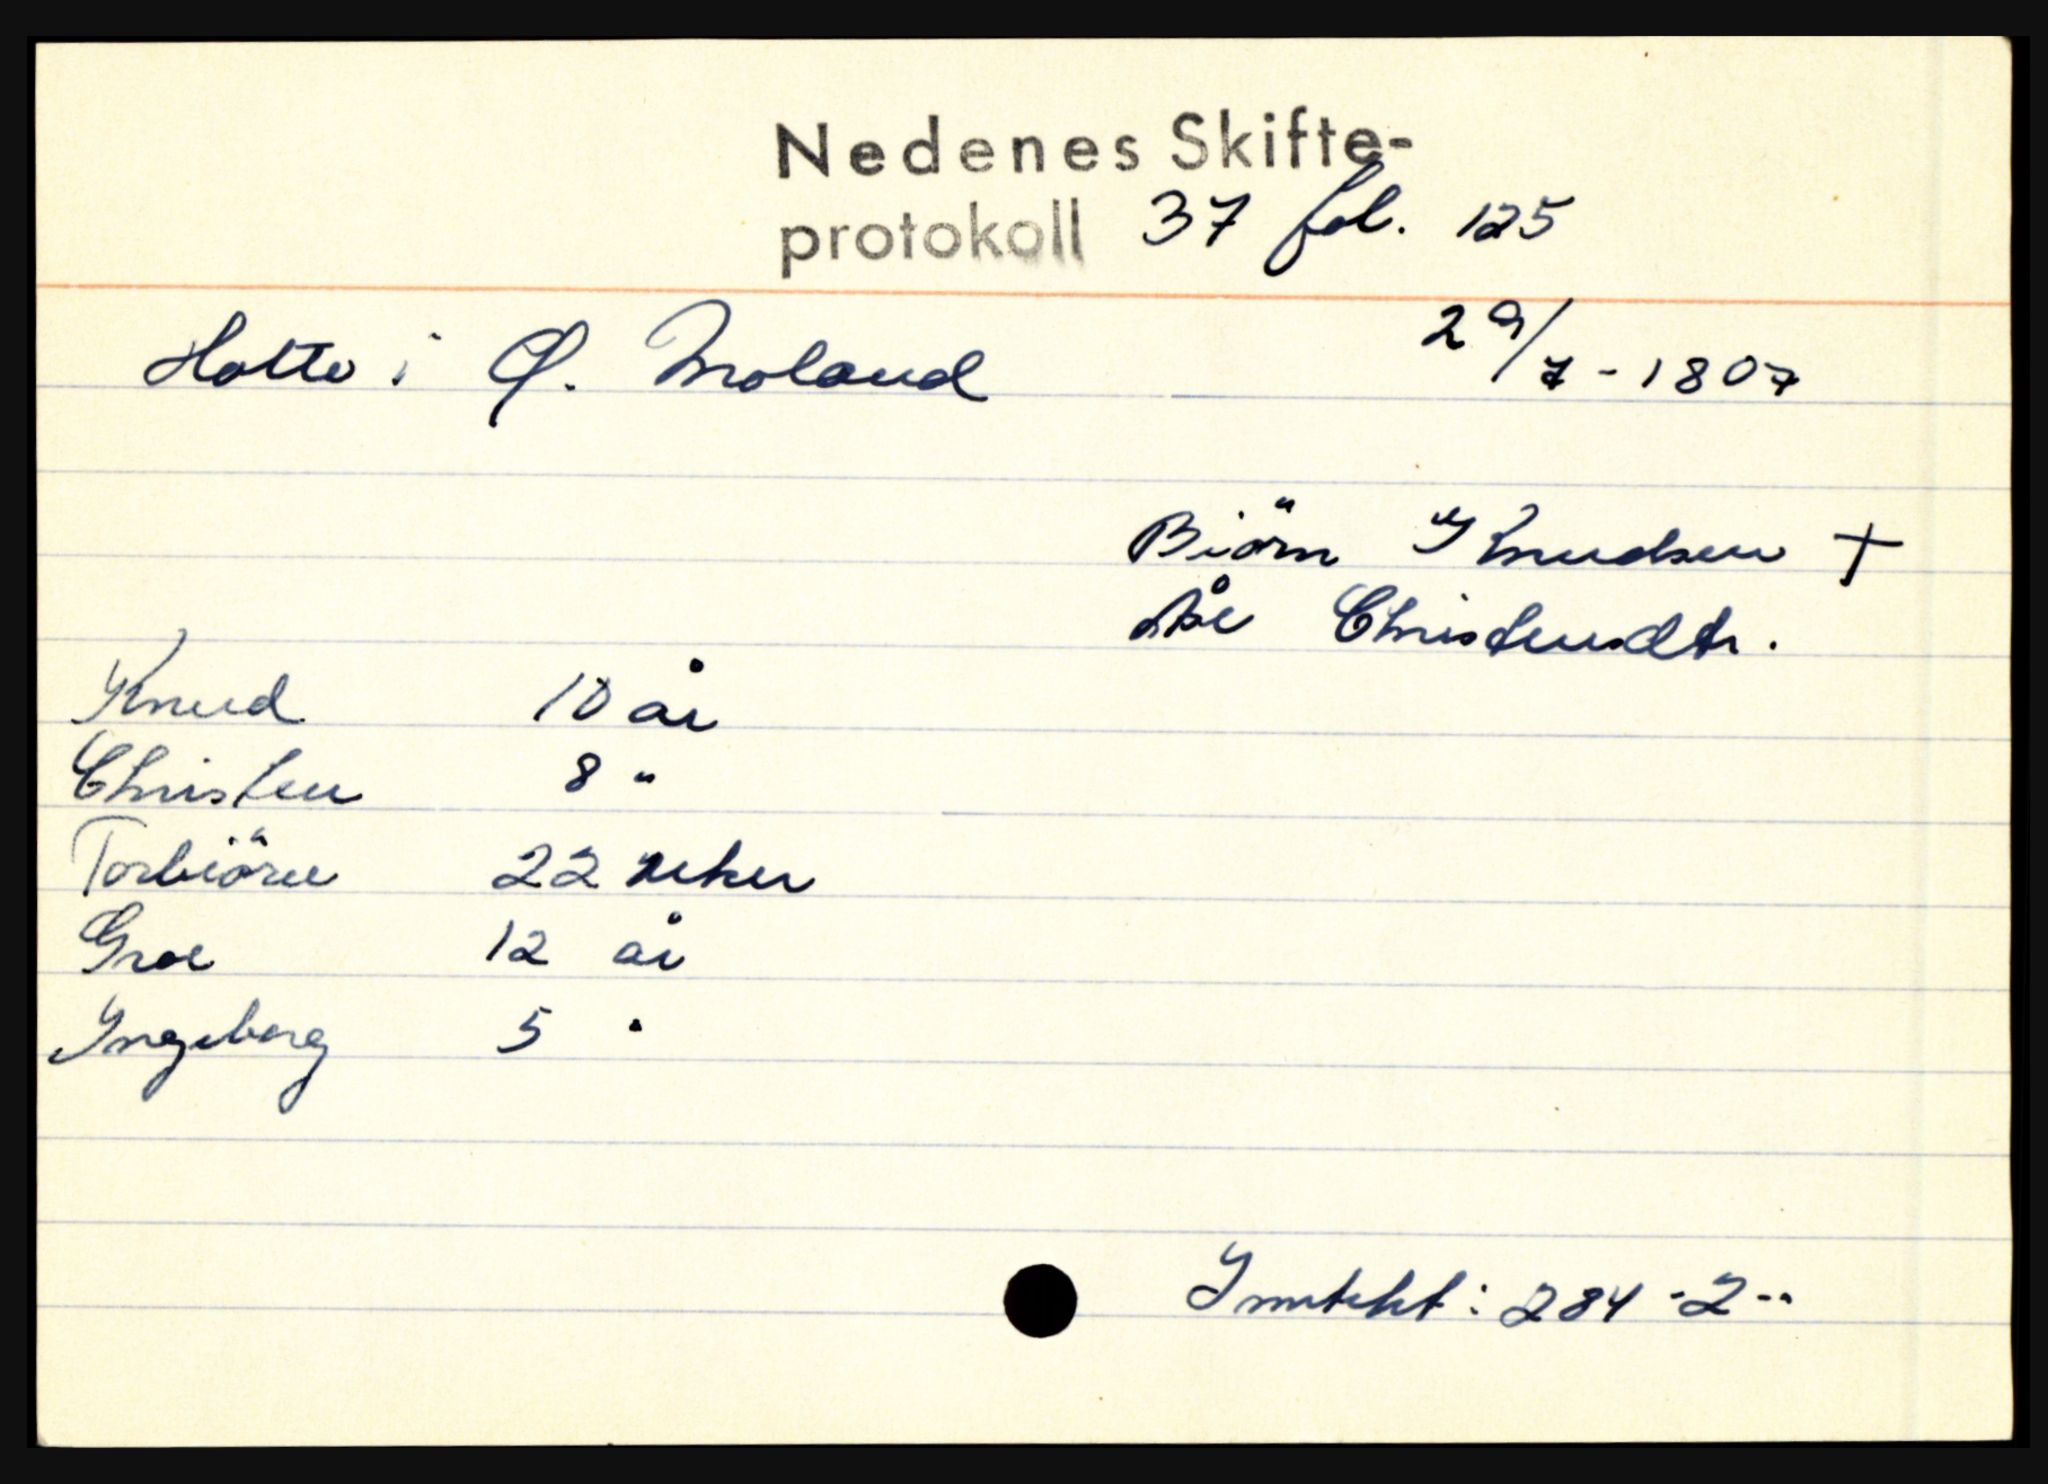 Nedenes Skifte-
protokoll 37 fol. 125
Holte i Ø. Moland 29/7-1807
Biörn Knudsen †
Åse Christensdtr.
Knud 10 år
Christen 8 "
Torbiörn 22 uker
Groe 12 år
Ingeborg 5 "
Inntekt: 284-2-"